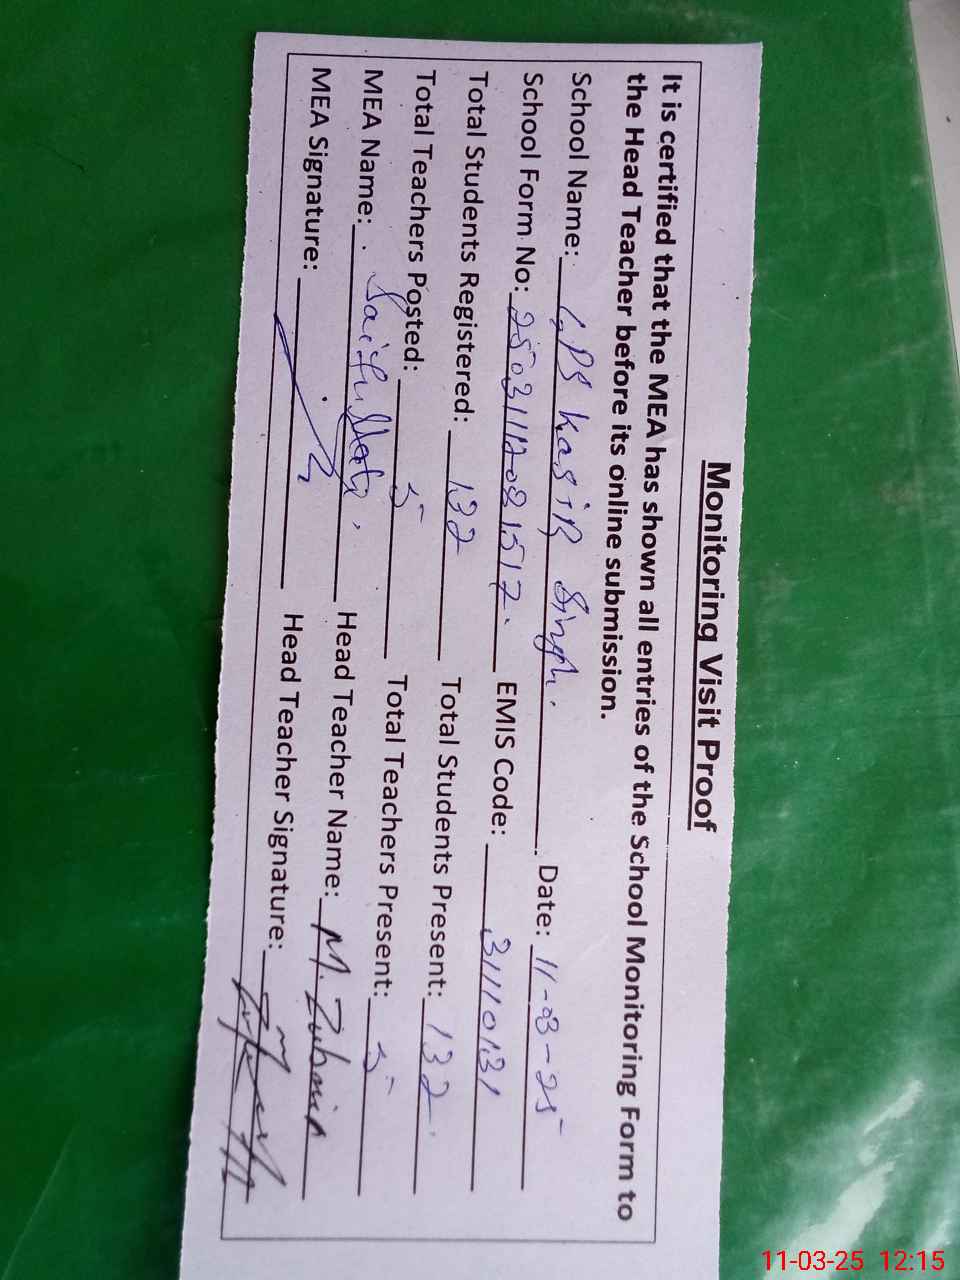 Monitoring Visit Proof
It is certified that the MEA has shown all entries of the School Monitoring Form to
the Head Teacher before its online submission.
School Name: GPS Kasir Singh. Date: 11-03-25
School Form No: EMIS Code: 31110131
Total Students Registered: 132 Total Students Present: 132
Total Teachers Posted: 5 Total Teachers Present: 5
MEA Name: Head Teacher Name: M. Zubair
MEA Signature: Head Teacher Signature:
11-03-25 12:15